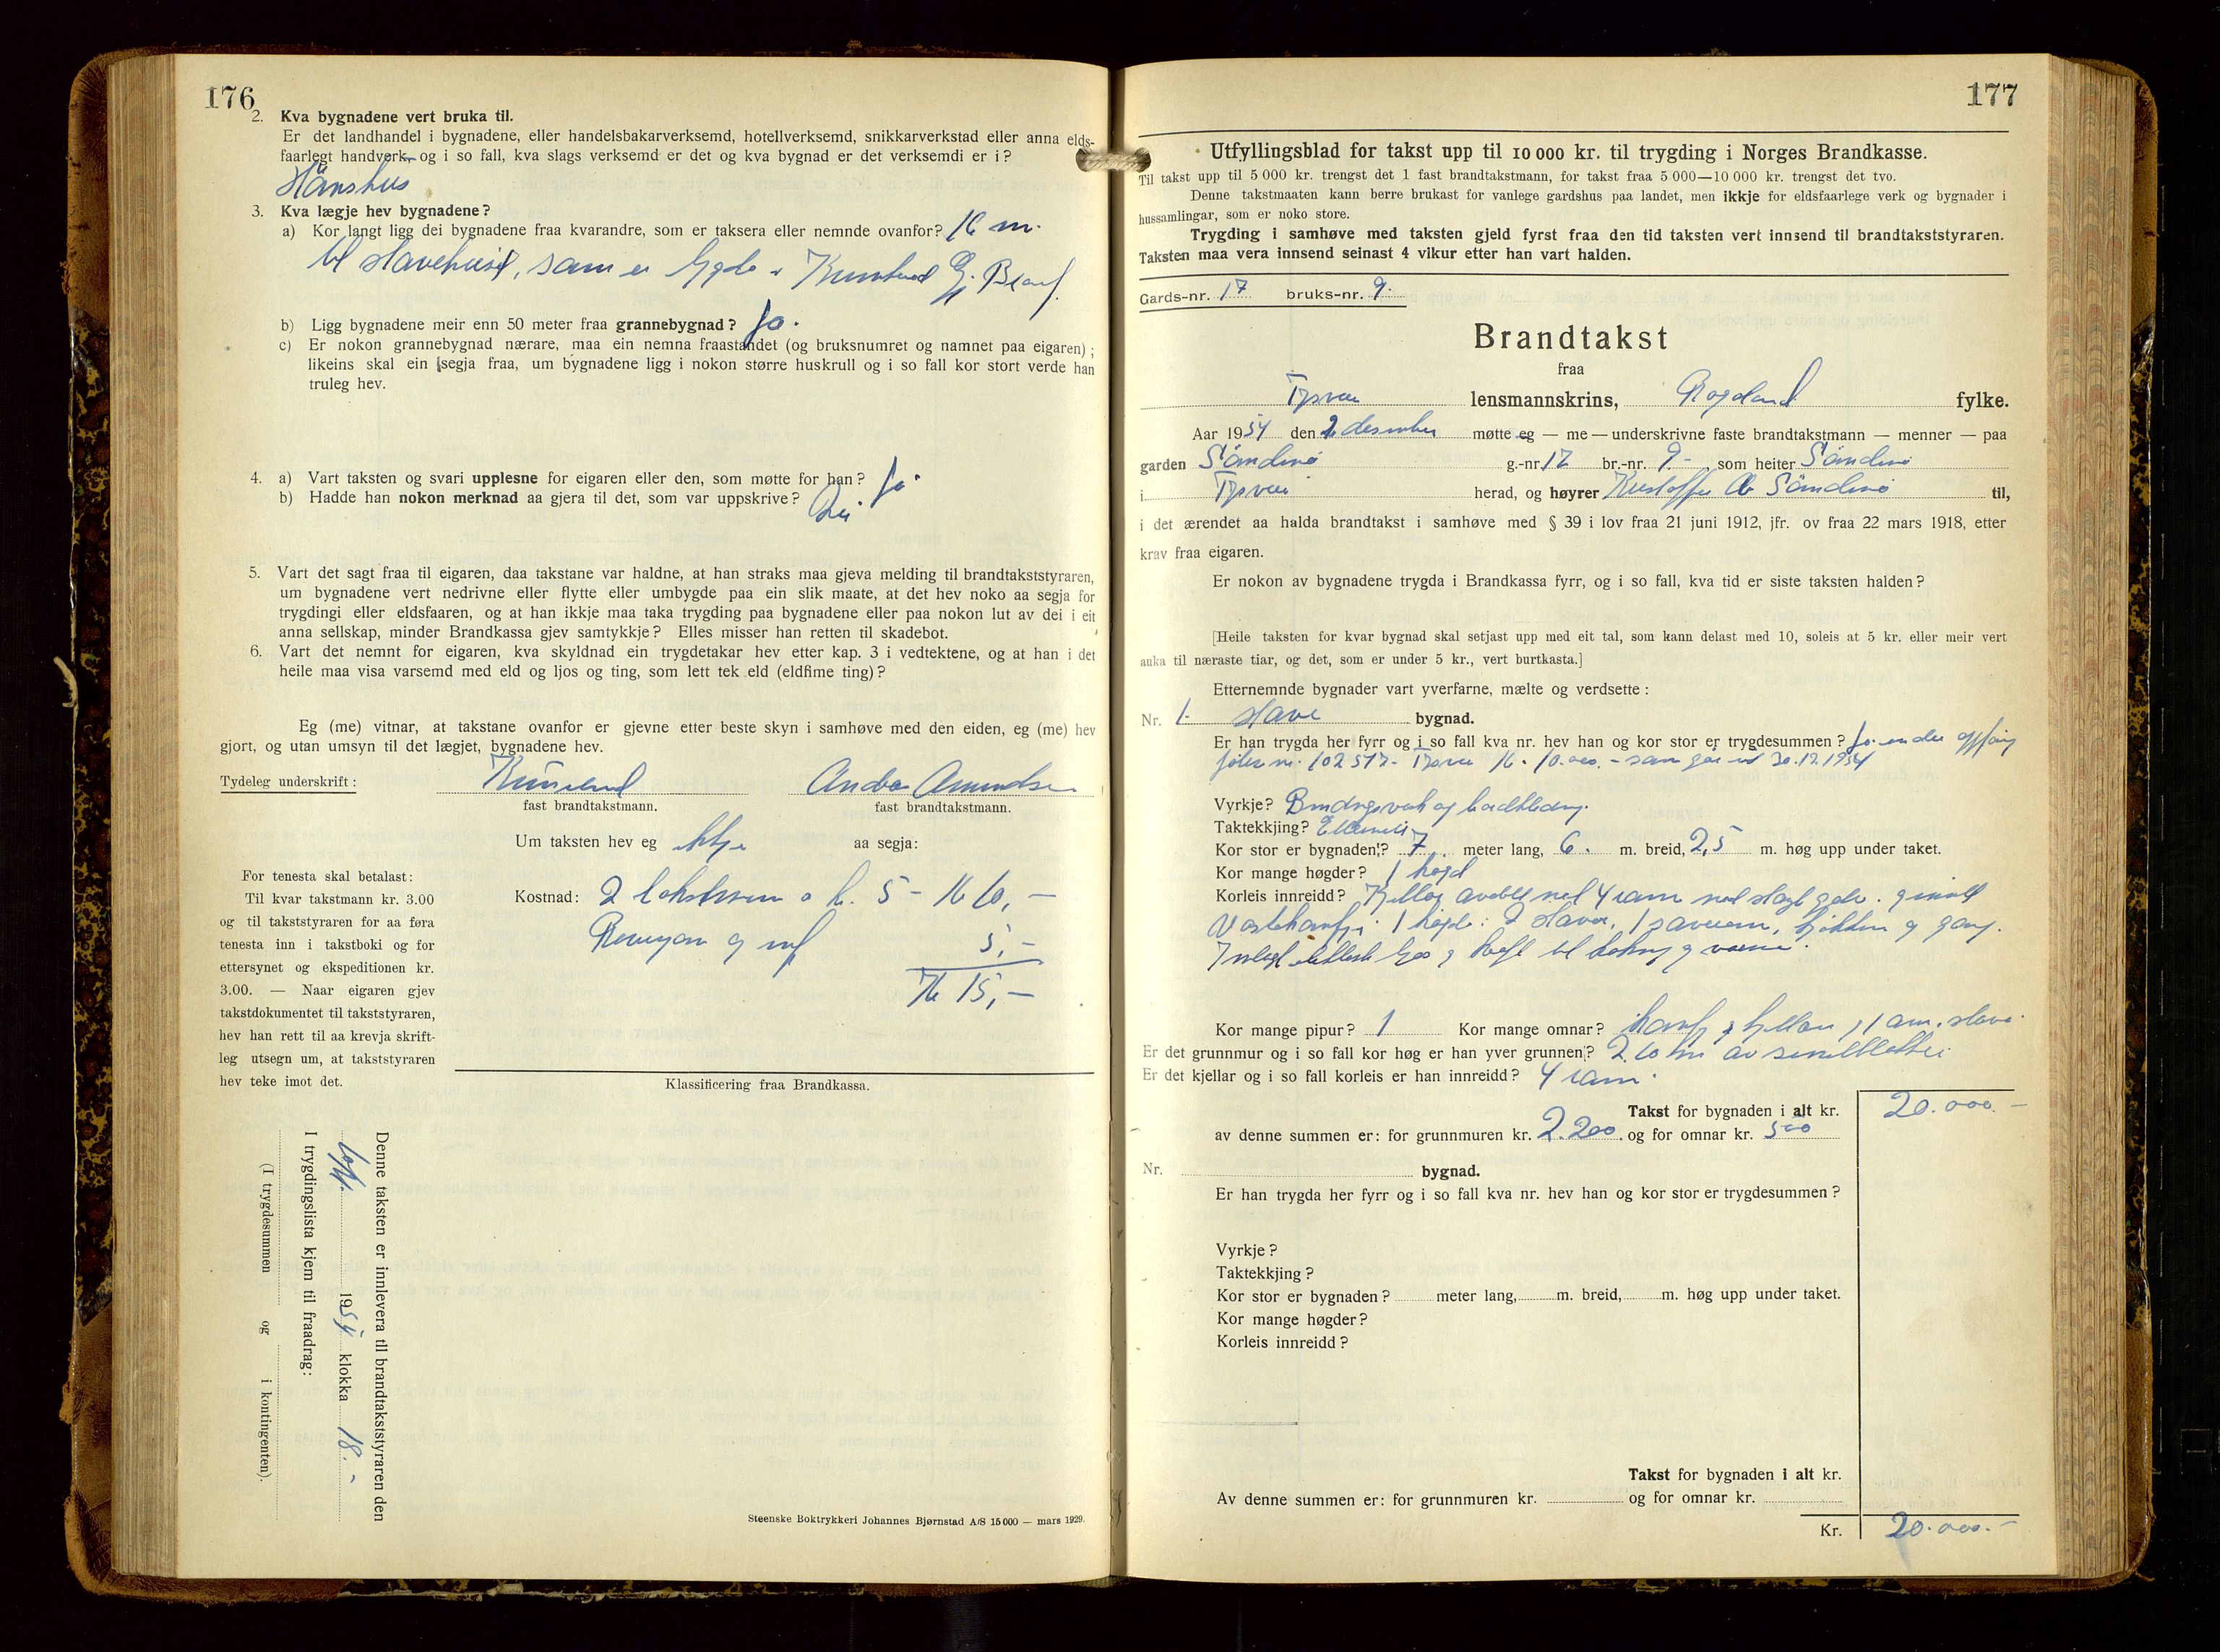 176
2. Kva bygnadene vert bruka til.
Er det landhandel i bygnadene, eller handelsbakarverksemd, hotellverksemd, snikkarverkstad eller anna elds-
faarlegt handverk, og i so fall, kva slags verksemd er det og kva bygnad er det verksemdi er i?
Hönshus
3. Kva lægje hev bygnadene?
a) Kor langt ligg dei bygnadene fraa kvarandre, som er taksera eller nemnde ovanfor? 16 m.
til stavehuset, som er
b) Ligg bygnadene meir enn 50 meter fraa grannebygnad? Ja.
c) Er nokon grannebygnad nærare, maa ein nemna fraastandet (og bruksnumret og namnet paa eigaren);
likeins skal ein segja fraa, um bygnadene ligg i nokon større huskrull og i so fall kor stort verde han
truleg hev.
4. a) Vart taksten og svari upplesne for eigaren eller den, som møtte for han? Ja.
b) Hadde han nokon merknad aa gjera til det, som var uppskrive? Nei.
5. Vart det sagt fraa til eigaren, daa takstane var haldne, at han straks maa gjeva melding til brandtakststyraren,
um bygnadene vert nedrivne eller flytte eller umbygde paa ein slik maate, at det hev noko aa segja for
trygdingi eller eldsfaaren, og at han ikkje maa taka trygding paa bygnadene eller paa nokon lut av dei i eit
anna sellskap, minder Brandkassa gjev samtykkje? Elles misser han retten til skadebot.
6. Vart det nemnt for eigaren, kva skyldnad ein trygdetakar hev etter kap. 3 i vedtektene, og at han i det
heile maa visa varsemd med eld og ljos og ting, som lett tek eld (eldfime ting)?
Eg (me) vitnar, at takstane ovanfor er gjevne etter beste skyn i samhøve med den eiden, eg (me) hev
gjort, og utan umsyn til det lægjet, bygnadene hev.
Tydeleg underskrift: Amundsen
fast brandtakstmann. fast brandtakstmann.
Um taksten hev eg ikkje aa segja:
For tenesta skal betalast:
Til kvar takstmann kr. 3.00
og til takststyraren for aa føra
tenesta inn i takstboki og for
ettersynet og ekspeditionen kr.
3.00. — Naar eigaren gjev
takstdokumentet til takststyraren,
hev han rett til aa krevja skrift-
leg utsegn um, at takststyraren
hev teke imot det.
Kostnad: 2 takstmenn a kr. 5 - Kr 10,—
5,—
Kr 15,—
Klassificering fraa Brandkassa.
Denne taksten er innlevera til brandtakststyraren den
1954 klokka 18.-
I trygdingslista kjem til fraadrag:
(I trygdesummen og i kontingenten).
Steenske Boktrykkeri Johannes Bjørnstad A/S 15 000 — mars 1929.
177
Utfyllingsblad for takst upp til 10 000 kr. til trygding i Norges Brandkasse.
Til takst upp til 5 000 kr. trengst det 1 fast brandtakstmann, for takst fraa 5 000—10 000 kr. trengst det tvo.
Denne takstmaaten kann berre brukast for vanlege gardshus paa landet, men ikkje for eldsfaarlege verk og bygnader i
hussamlingar, som er noko store.
Trygding i samhøve med taksten gjeld fyrst fraa den tid taksten vert innsend til brandtakststyraren.
Taksten maa vera innsend seinast 4 vikur etter han vart halden.
Gards-nr. 17 bruks-nr. 9.
Brandtakst
fraa
Tysvær lensmannskrins, Rogaland fylke.
Aar 1954 den 2 desember møtte eg — me — underskrivne faste brandtakstmann — menner — paa
garden Söndenö g.-nr 17 br.-nr. 9.- som heiter Söndenö
i Tysvær herad, og høyrer Kristoffer Söndenö til,
i det ærendet aa halda brandtakst i samhøve med § 39 i lov fraa 21 juni 1912, jfr. ov fraa 22 mars 1918, etter
krav fraa eigaren.
Er nokon av bygnadene trygda i Brandkassa fyrr, og i so fall, kva tid er siste taksten halden?
[Heile taksten for kvar bygnad skal setjast upp med eit tal, som kann delast med 10, soleis at 5 kr. eller meir vert
auka til næraste tiar, og det, som er under 5 kr., vert burtkasta.]
Etternemnde bygnader vart yverfarne, mælte og verdsette:
Nr. 1. Stove bygnad.
Er han trygda her fyrr og i so fall kva nr. hev han og kor stor er trygdesummen? Ja. under
nr. 102517- Tysvær kr. 10.000.- som går ut 30.12.1954
Vyrkje? Bindingsverk og bordkledning.
Taktekkjing? Eternit
Kor stor er bygnaden? 7. meter lang, 6. m. breid, 2,5 m. høg upp under taket.
Kor mange høgder? 1 høgd
Korleis innreidd? Kjellar avdelt med 4 rom med støpt golv.
1 høgde: 2 stover, 1 soverom, kjökken og gang.
Kor mange pipur? 1 Kor mange omnar?
Er det grunnmur og i so fall kor høg er han yver grunnen?
Er det kjellar og i so fall korleis er han innreidd? 4 rom.
Takst for bygnaden i alt kr. 20.000.—
av denne summen er: for grunnmuren kr. 2.200. og for omnar kr. 500
Nr. bygnad.
Er han trygda her fyrr og i so fall kva nr. hev han og kor stor er trygdesummen?
Vyrkje?
Taktekkjing?
Kor stor er bygnaden? meter lang, m. breid, m. høg upp under taket.
Kor mange høgder?
Korleis innreidd?
Takst for bygnaden i alt kr.
Av denne summen er: for grunnmuren kr. og for omnar kr.
Kr. 20.000.—